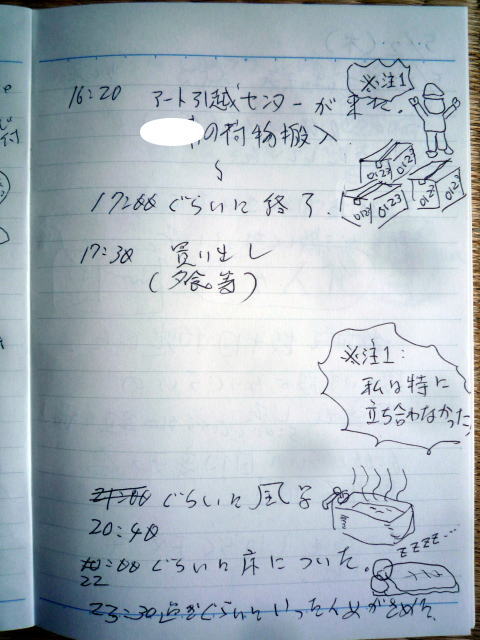 ※注1
16:20 アート引越センターが来た.
の荷物搬入
0123 0123
0123 0123 0123
17:00 ぐらいに 終了.
17:30 買い出し
(夕食等)
※注1:
私は特に
立ち合わなかった
21:00 ぐらいに 風呂
20:40
ぐらいに 床についた.
22
ZZZZ...
23:30 ぐらいに いったん めがさめた